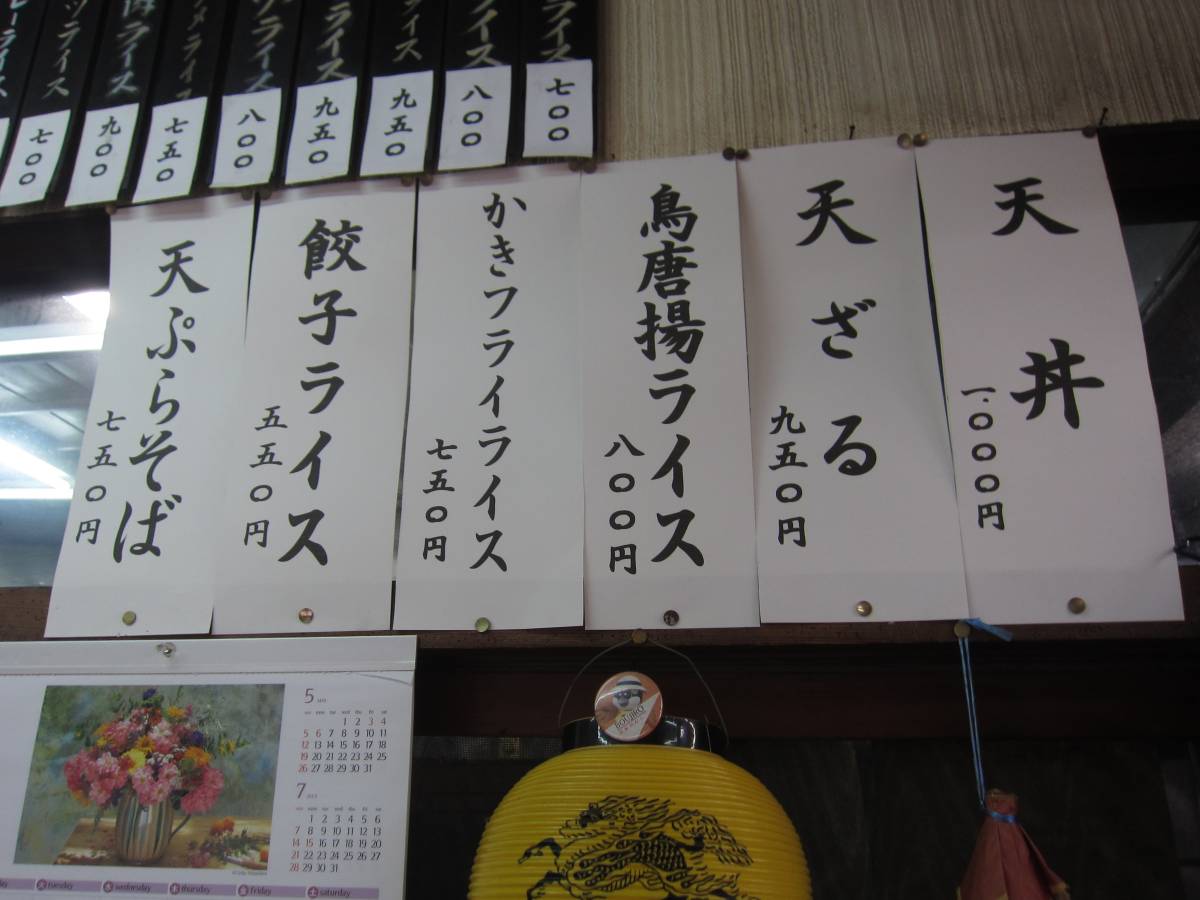 ライス
七〇〇
ライス
八〇〇
イス
九五〇
ライス
九五〇
ライス
八〇〇
メライス
七五〇
ライス
九〇〇
ツライス
七〇〇
ーライス
天丼
一、〇〇〇円
天ざる
九五〇円
鳥唐揚ライス
八〇〇円
かきフライライス
七五〇円
餃子ライス
五五〇円
天ぷらそば
七五〇円
5
1 2 3 4
5 6 7 8 9 10 11
12 13 14 15 16 17 18
19 20 21 22 23 24 25
26 27 28 29 30 31
7
1 2 3 4 5 6
7 8 9 10 11 12 13
14 15 16 17 18 19 20
21 22 23 24 25 26 27
28 29 30 31
火 tuesday
水 wednesday
木 thursday
金 friday
土 saturday